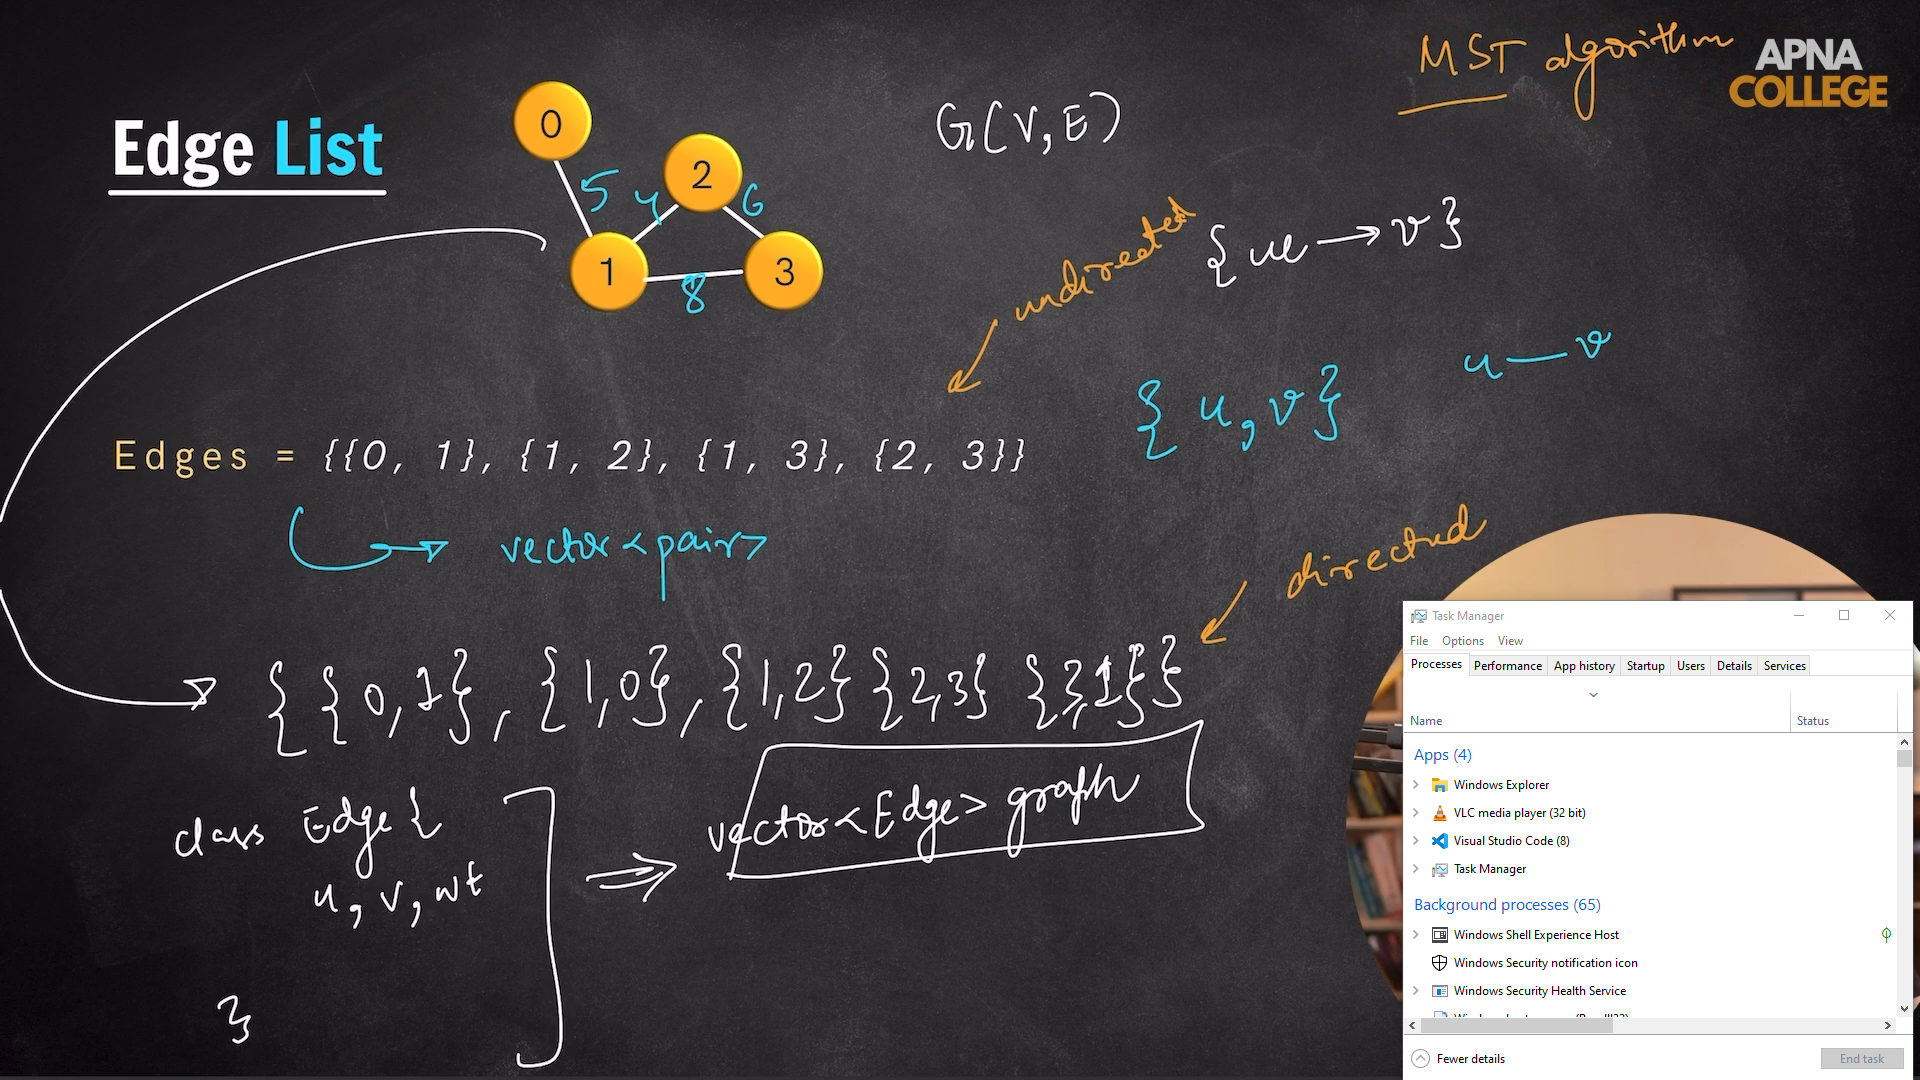 MST algorithm
APNA
COLLEGE
Edge List
0
2
1
3
5
4
6
8
G(V,E)
undirected
{u → v}
{u,v}
u — v
Edges = {{0, 1}, {1, 2}, {1, 3}, {2, 3}}
vector<pair>
directed
{{0,1}, {1,0}, {1,2} {2,3} {3,1}}
class Edge {
u, v, wt
}
⇒ vector<Edge> graph
Task Manager
File Options View
Processes Performance App history Startup Users Details Services
Name Status
Apps (4)
Windows Explorer
VLC media player (32 bit)
Visual Studio Code (8)
Task Manager
Background processes (65)
Windows Shell Experience Host
Windows Security notification icon
Windows Security Health Service
Fewer details
End task